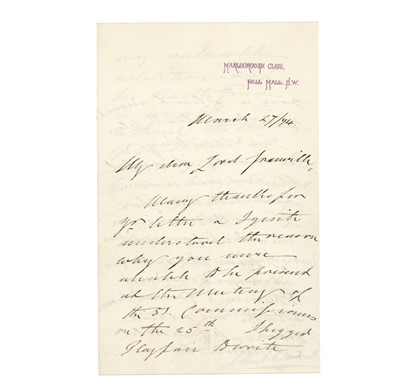 MARLBOROUGH CLUB,
PALL MALL, S.W.
March 27/74.
My dear Lord Granville,
Many thanks for
yr. letter & I quite
understand the reason
why you were
unable to be present
at the Meeting of
the 51 Commissioners
on the 25th. I begged
Playfair to write